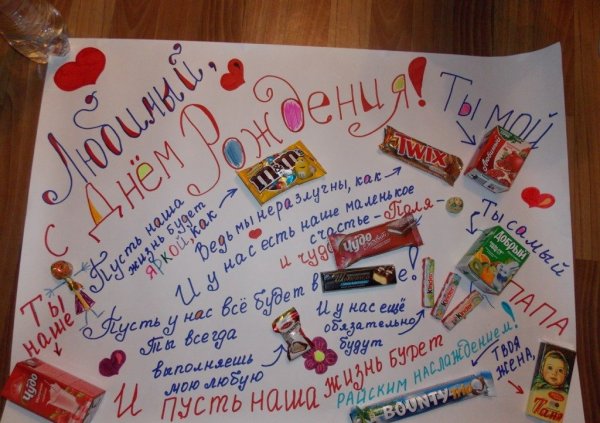 Любимый,
с Днём Рождения!
Ты мой
Любимый
TWIX
m&m's
Пусть наша
жизнь будет
яркой, как
Ведь мы неразлучны, как
И у нас есть наше маленькое
счастье - Поля -
и чудо
Чудо
Ты самый
Добрый
ПАПА
Пусть у нас всё будет в !
Ты всегда
выполняешь
мою любую
И у нас ещё
обязательно
будут
Kinder
Kinder
Kinder
Ты
наше
Чудо
И пусть наша жизнь будет
райским наслаждением!
BOUNTY
Твоя
жена,
Таня